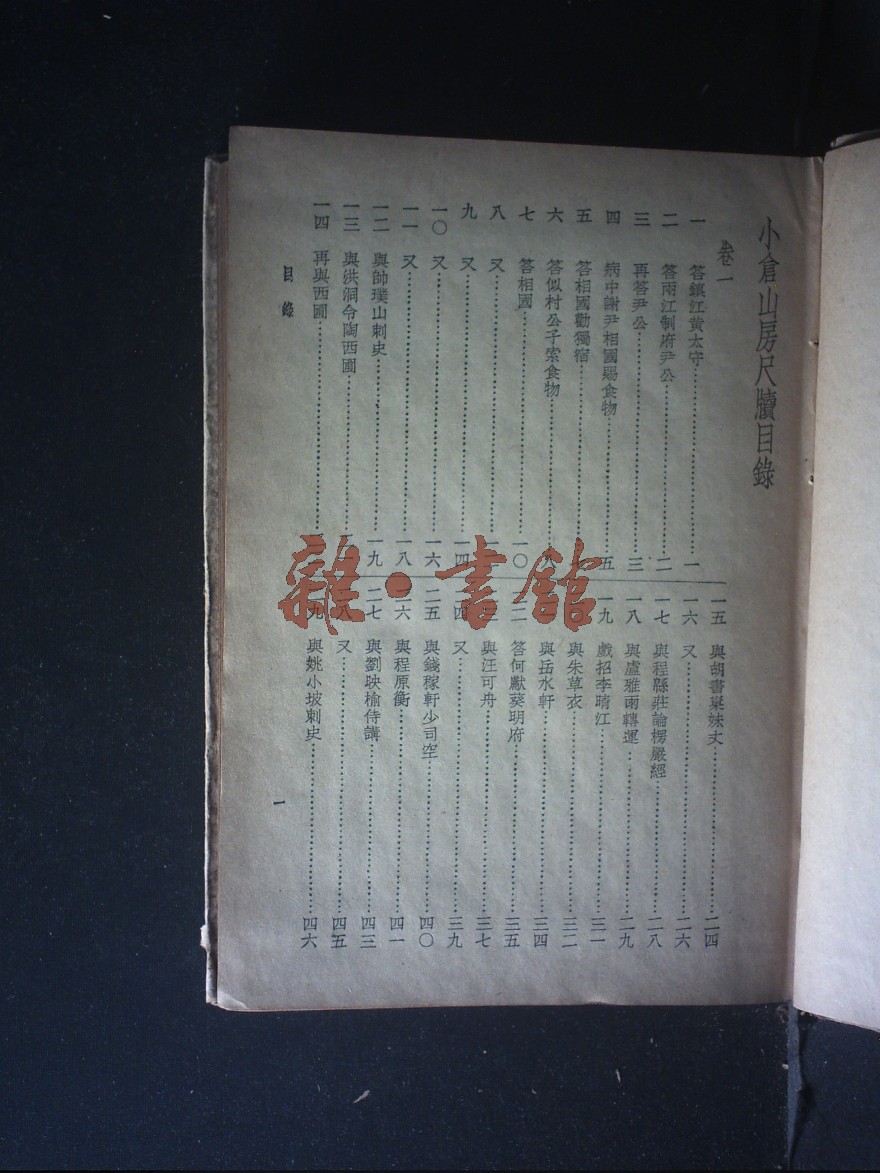 小倉山房尺牘目錄
卷一
一 答鎮江黃太守 一
二 答兩江制府尹公 二
三 再答尹公 三
四 病中謝尹相國賜食物 五
五 答相國勸獨宿
六 答似村公子索食物 八
七 答相國 一〇
八 又
九 又 一四
一〇 又 一六
一一 又 一八
一二 與帥璞山刺史 一九
一三 與洪洞令陶西圃
一四 再與西圃
一五 與胡書巢妹丈 二四
一六 又 二六
一七 與程緜莊論楞嚴經 二八
一八 與盧雅雨轉運 二九
一九 戲招李晴江 三一
與朱草衣 三二
與岳水軒 三四
答何獻葵明府 三五
與汪可舟 三七
四 又 三九
二五 與錢稼軒少司空 四〇
二六 與程原衡 四一
二七 與劉映榆侍講 四三
八 又 四五
九 與姚小坡刺史 四六
目錄
一
雜·書館